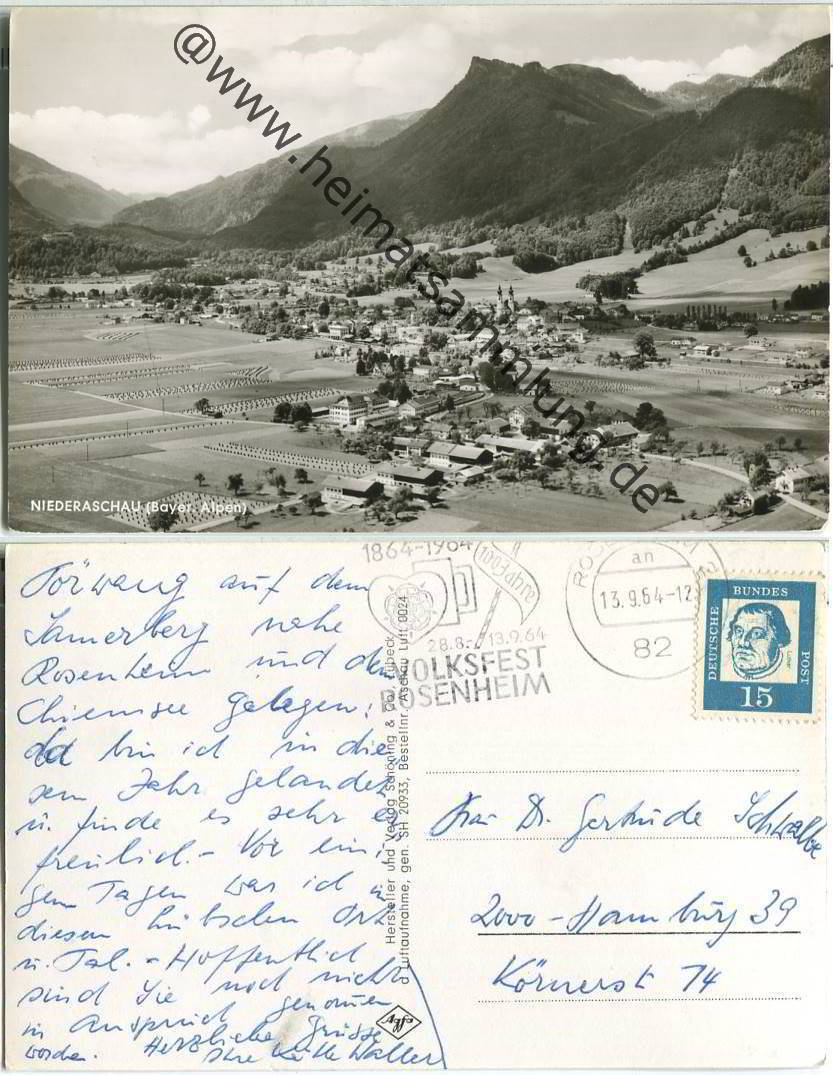 @www.heimatsammlung.de
NIEDERASCHAU (Bayer. Alpen)
Törwang auf dem
Samerberg nahe
Rosenheim und dem
Chiemsee gelegen:
da bin ich in die
sem Jahr gelandet
u. finde es sehr er
freulich. - Vor eini
gen Tagen war ich in
diesem hübschen Ort
u. Tal. - Hoffentlich
sind Sie noch nicht
in Anspruch genommen
worden. Herzliche Grüsse
Ihre Waller
Hersteller und Verlag Schöning & Co., Lübeck
Luftaufnahme, gen. SH 20933, Bestellnr. Aschau Luft 0024
Agfa
1864-1964
100 Jahre
28.8.-13.9.64
VOLKSFEST
ROSENHEIM
ROSENHEIM
an
13.9.64-12
82
DEUTSCHE BUNDES POST
Luther
15
Frau Dr. Gertrude Schwalbe
2000-Hamburg 39
Körnerstr 14